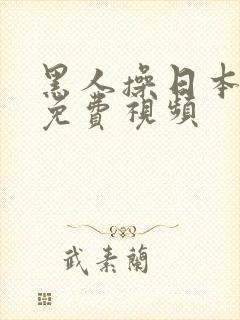 黑人操日本
免費視頻
武素蘭